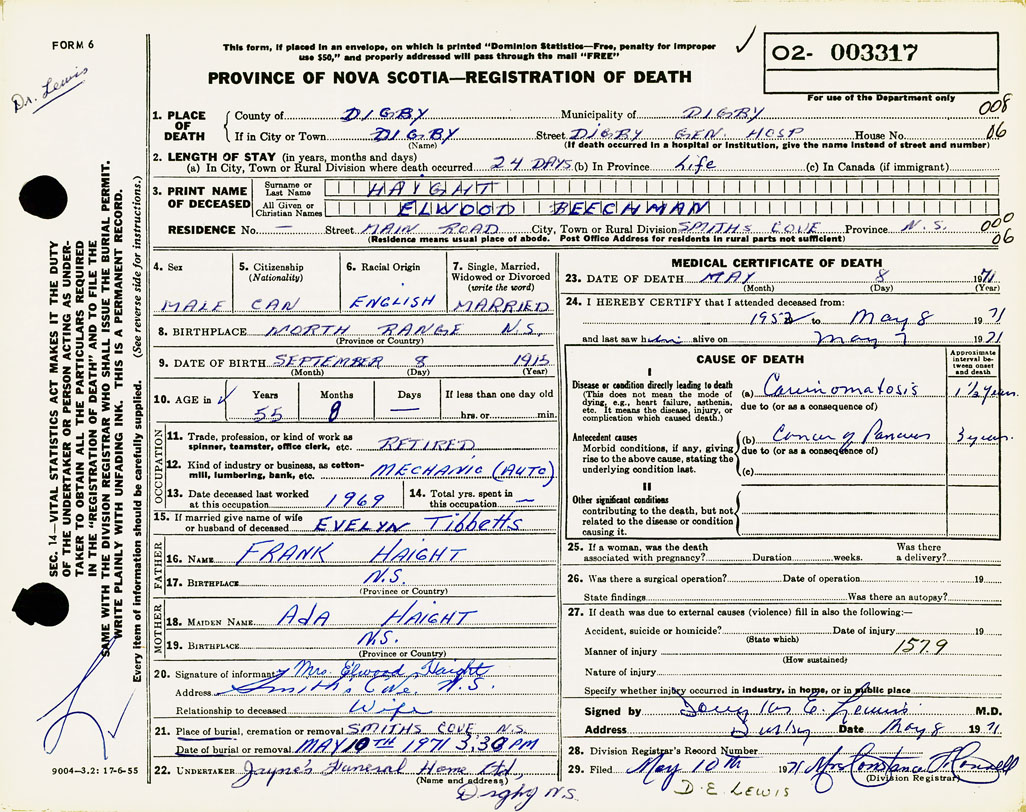 FORM 6
Dr. Lewis
This form, if placed in an envelope, on which is printed "Dominion Statistics—Free, penalty for improper
use $50," and properly addressed will pass through the mail "FREE"
PROVINCE OF NOVA SCOTIA—REGISTRATION OF DEATH
02- 003317
For use of the Department only
008
06
1. PLACE OF DEATH
County of DIGBY Municipality of DIGBY
If in City or Town DIGBY Street DIGBY GEN. HOSP House No.
(Name) (If death occurred in a hospital or institution, give the name instead of street and number)
2. LENGTH OF STAY (in years, months and days)
(a) In City, Town or Rural Division where death occurred 24 DAYS (b) In Province Life (c) In Canada (if immigrant)
3. PRINT NAME OF DECEASED
Surname or Last Name HAIGHT
All Given or Christian Names ELWOOD BEECHMAN
RESIDENCE No. — Street MAIN ROAD City, Town or Rural Division SMITHS COVE Province N.S.
000
06
(Residence means usual place of abode. Post Office Address for residents in rural parts not sufficient)
4. Sex MALE
5. Citizenship (Nationality) CAN
6. Racial Origin ENGLISH
7. Single, Married, Widowed or Divorced (write the word) MARRIED
8. BIRTHPLACE NORTH RANGE N.S.
(Province or Country)
9. DATE OF BIRTH SEPTEMBER 8 1915
(Month) (Day) (Year)
10. AGE in Years 55 Months 8 Days — If less than one day old hrs. or min.
OCCUPATION
11. Trade, profession, or kind of work as spinner, teamster, office clerk, etc. RETIRED
12. Kind of industry or business, as cotton-mill, lumbering, bank, etc. MECHANIC (AUTO)
13. Date deceased last worked at this occupation 1969
14. Total yrs. spent in this occupation —
15. If married give name of wife or husband of deceased EVELYN TIBBETTS
FATHER
16. NAME FRANK HAIGHT
17. BIRTHPLACE N.S.
(Province or Country)
MOTHER
18. MAIDEN NAME ADA HAIGHT
19. BIRTHPLACE N.S.
(Province or Country)
20. Signature of informant Mrs Elwood Haight
Address Smiths Cove N.S.
Relationship to deceased Wife
21. Place of burial, cremation or removal SMITHS COVE N.S.
Date of burial or removal MAY 10TH 1971 3.30 PM
22. UNDERTAKER Jayne's Funeral Home Ltd,
(Name and address) Digby N.S.
MEDICAL CERTIFICATE OF DEATH
23. DATE OF DEATH MAY 8 1971
(Month) (Day) (Year)
24. I HEREBY CERTIFY that I attended deceased from:
1952 to May 8 1971
and last saw him alive on May 7 1971
CAUSE OF DEATH
Approximate interval between onset and death
I
Disease or condition directly leading to death
(This does not mean the mode of dying, e.g., heart failure, asthenia, etc. It means the disease, injury, or complication which caused death.)
(a) Carcinomatosis 1½ years
due to (or as a consequence of)
Antecedent causes
Morbid conditions, if any, giving rise to the above cause, stating the underlying condition last.
(b) Cancer of Pancreas 3 years
due to (or as a consequence of)
(c)
II
Other significant conditions
contributing to the death, but not related to the disease or condition causing it.
25. If a woman, was the death associated with pregnancy? Duration weeks. Was there a delivery?
26. Was there a surgical operation? Date of operation 19
State findings Was there an autopsy?
27. If death was due to external causes (violence) fill in also the following:—
Accident, suicide or homicide? Date of injury 19
(State which)
Manner of injury 1579
(How sustained)
Nature of injury
Specify whether injury occurred in industry, in home, or in public place
Signed by Douglas E. Lewis M.D.
Address Digby Date May 8 1971
28. Division Registrar's Record Number
29. Filed May 10th 1971 Mrs Constance
(Division Registrar)
D. E. LEWIS
SEC. 14—VITAL STATISTICS ACT MAKES IT THE DUTY
OF THE UNDERTAKER OR PERSON ACTING AS UNDER-
TAKER TO OBTAIN ALL THE PARTICULARS REQUIRED
IN THE "REGISTRATION OF DEATH" AND TO FILE THE
SAME WITH THE DIVISION REGISTRAR WHO SHALL ISSUE THE BURIAL PERMIT.
WRITE PLAINLY WITH UNFADING INK. THIS IS A PERMANENT RECORD.
Every item of information should be carefully supplied. (See reverse side for instructions.)
9004-3.2: 17-6-55